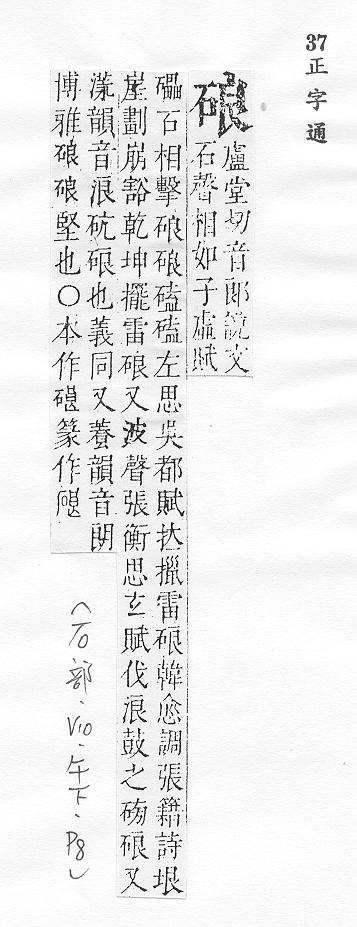 37正字通
硠
盧堂切音郎說文
石聲相如子虛賦
礧石相擊硠硠磕磕左思吳都賦拉擸雷硠韓愈調張籍詩垠
崖劃崩豁乾坤擺雷硠又波聲張衡思玄賦伐浪鼓之硠又
漾韻音浪硠也義同又養韻音朗
博雅硠硠堅也○本作篆作
(石部·V10·午下·P8)